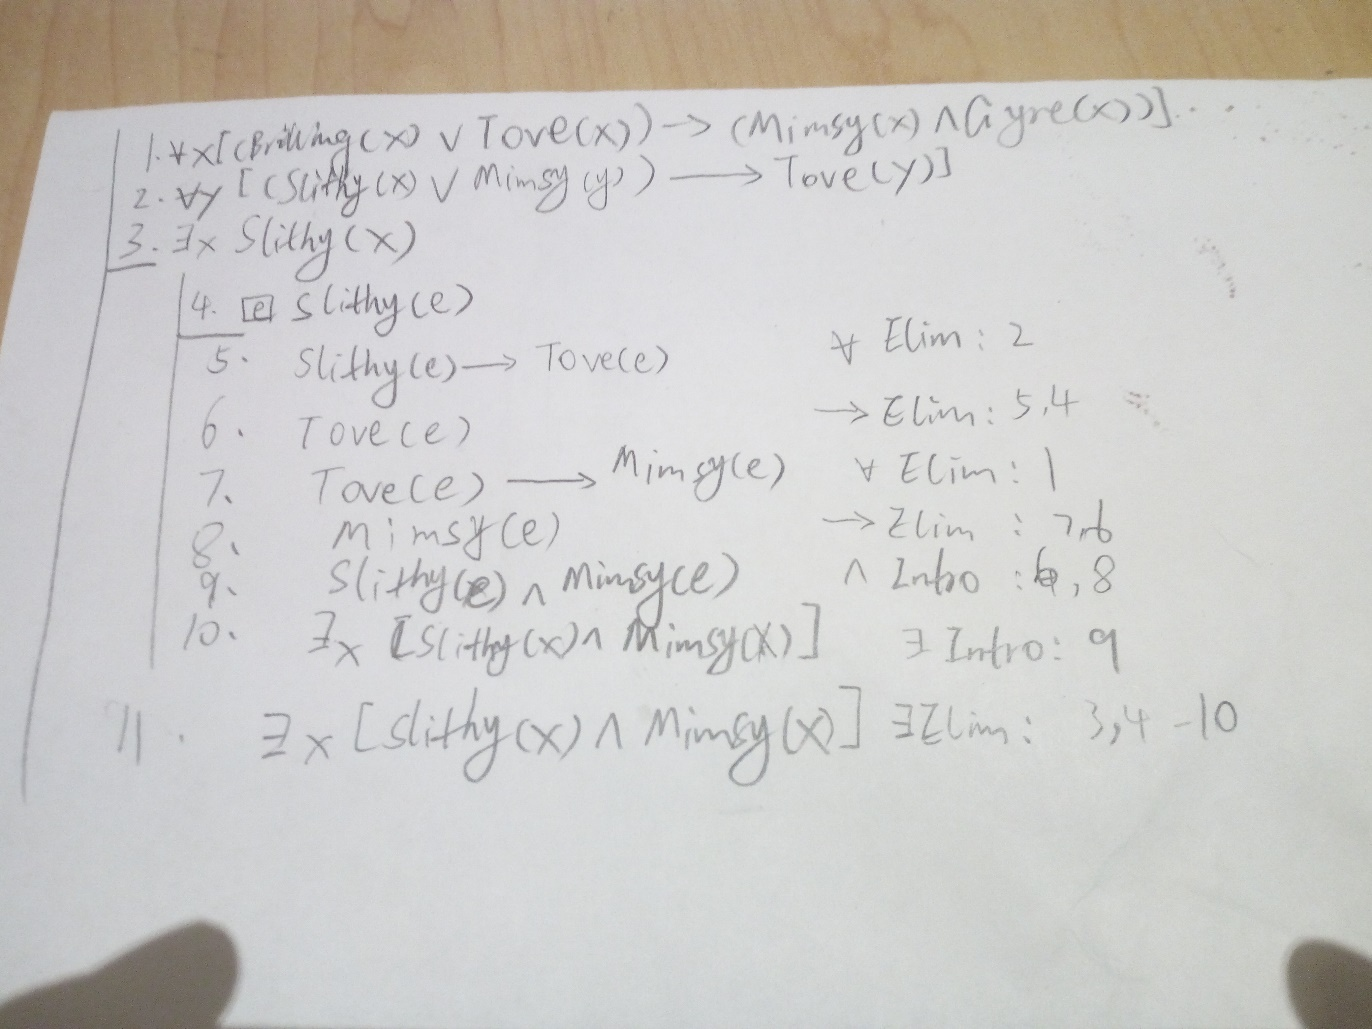 1. ∀x[(Brillling(x) ∨ Tove(x)) → (Mimsy(x) ∧ Gyre(x))]
2. ∀y [(Slithy(x) ∨ Mimsy(y)) → Tove(y)]
3. ∃x Slithy(x)
4. [e] Slithy(e)
5. Slithy(e) → Tove(e) ∀ Elim: 2
6. Tove(e) → Elim: 5,4
7. Tove(e) → Mimsy(e) ∀ Elim: 1
8. Mimsy(e) → Elim : 7,6
9. Slithy(e) ∧ Mimsy(e) ∧ Intro : , 8
10. ∃x [Slithy(x) ∧ Mimsy(x)] ∃ Intro: 9
11. ∃x [Slithy(x) ∧ Mimsy(x)] ∃ Elim: 3,4-10